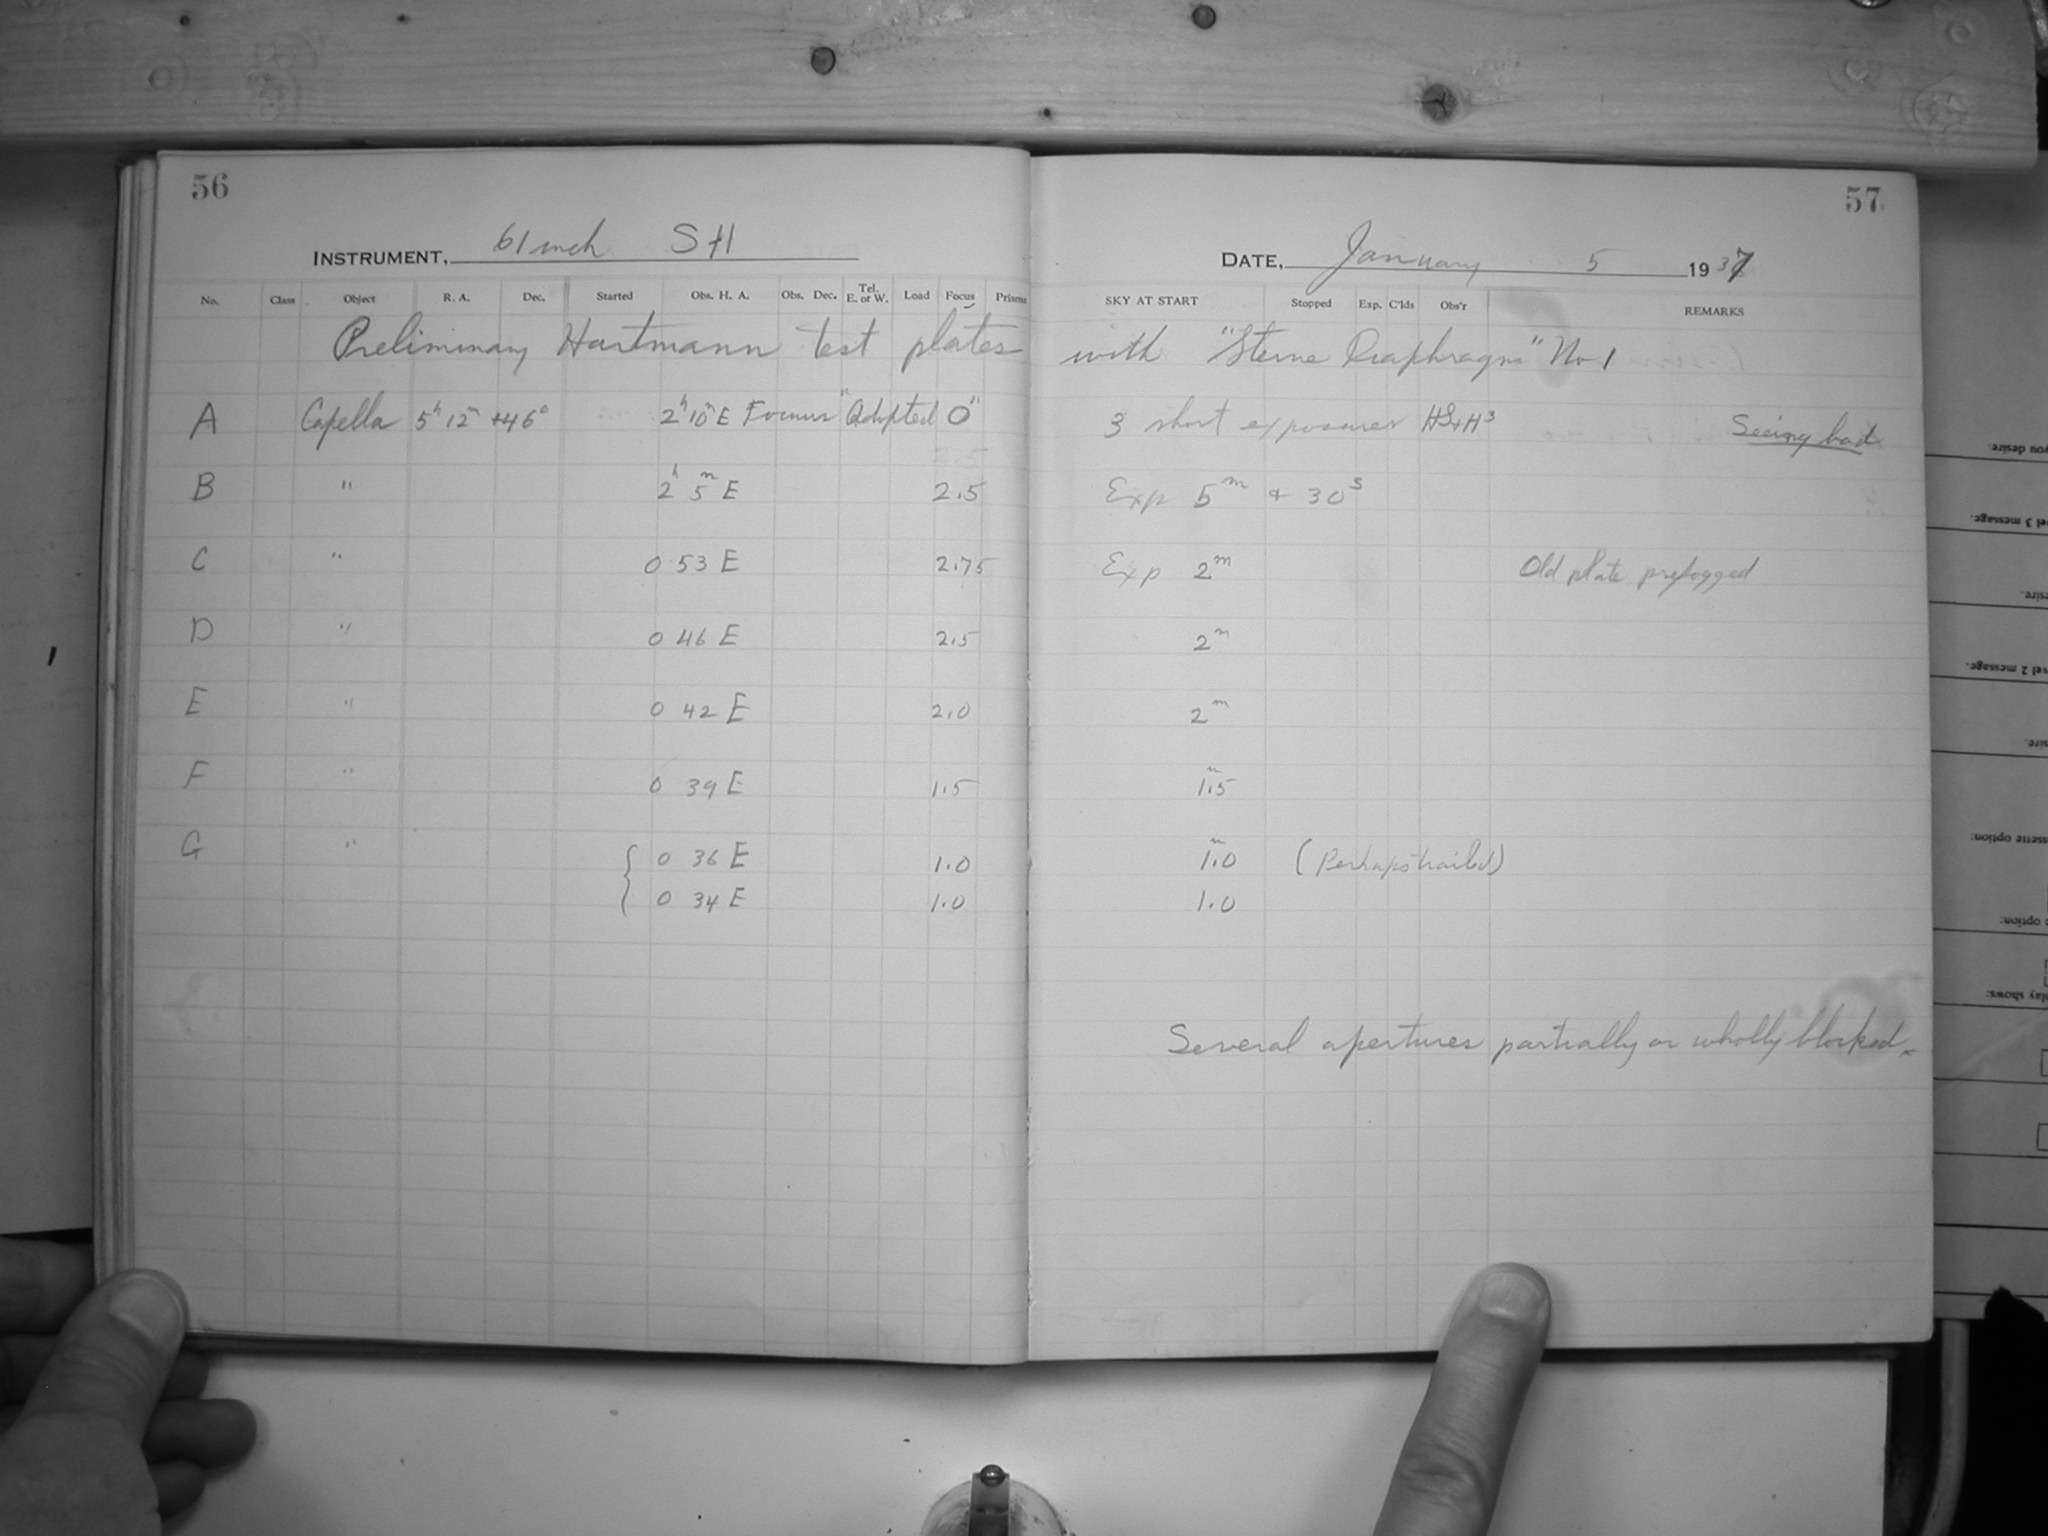 56
INSTRUMENT, 61 inch SH
No. Class Object R. A. Dec. Started Obs. H. A. Obs. Dec. Tel. E. or W. Load Focus Prisms
Preliminary Hartmann test plates
A Capella 5h 12m +46° 2h 10m E Focus "Adopted 0"
B " 2h 5m E 2.5
C " 0 53 E 2.75
D " 0 46 E 2.5
E " 0 42 E 2.0
F " 0 39 E 1.5
G " { 0 36 E 1.0
0 34 E 1.0
57
DATE, January 5 1937
SKY AT START Stopped Exp. C'lds Obs'r REMARKS
with "Sterne Diaphragm" No 1
3 short exposures Seeing bad
Exp 5m & 30s
Exp 2m Old plate prefogged
2m
2m
1.5m
1.0m (Perhaps trailed)
1.0
Several apertures partially or wholly blocked.
you desire
vel 3 message.
sire.
vel 2 message.
sire.
ssette option:
option:
play shows: